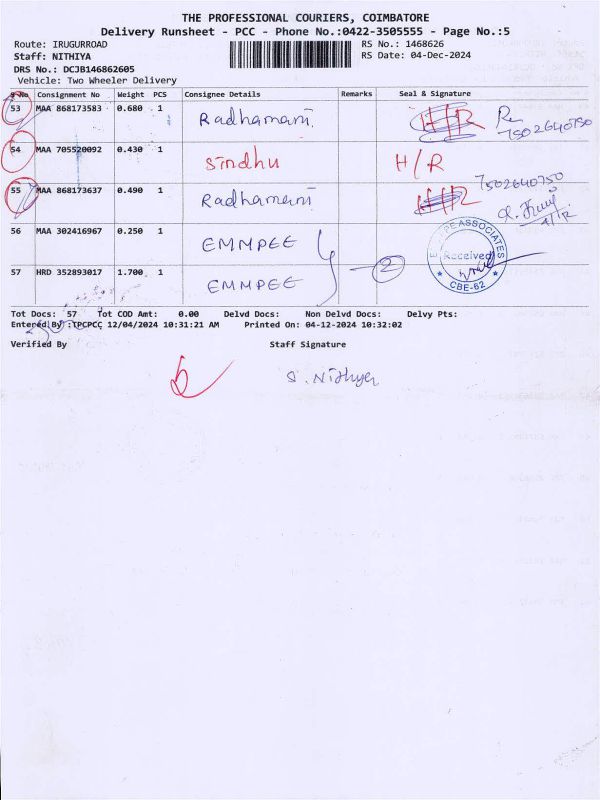 THE PROFESSIONAL COURIERS, COIMBATORE
Delivery Runsheet - PCC - Phone No.:0422-3505555 - Page No.:5
Route: IRUGURROAD RS No.: 1468626
Staff: NITHIYA RS Date: 04-Dec-2024
DRS No.: DCJB146862605
Vehicle: Two Wheeler Delivery
S No Consignment No Weight PCS Consignee Details Remarks Seal & Signature
53 MAA 868173583 0.680 1 Radhamani H/R 7502640750
54 MAA 705520092 0.430 1 Sindhu H/R
55 MAA 868173637 0.490 1 Radhamani 7502640750
56 MAA 302416967 0.250 1 EMMPEE
57 HRD 352893017 1.700 1 EMMPEE 2
PE ASSOCIATES
Received
CBE-62
Tot Docs: 57 Tot COD Amt: 0.00 Delvd Docs: Non Delvd Docs: Delvy Pts:
Entered By :TPCPCC 12/04/2024 10:31:21 AM Printed On: 04-12-2024 10:32:02
Verified By Staff Signature
S. Nithiya